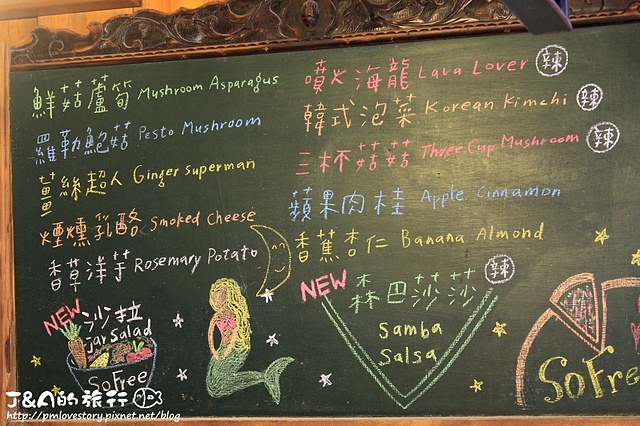 鮮菇蘆筍 Mushroom Asparagus
羅勒鮑菇 Pesto Mushroom
薑絲超人 Ginger Superman
煙燻乳酪 Smoked Cheese
香草洋芋 Rosemary Potato
NEW 沙拉
jar Salad
SoFree
噴火海龍 Lava Lover 辣
韓式泡菜 Korean Kimchi 辣
三杯菇菇 Three Cup Mushroom 辣
蘋果肉桂 Apple Cinnamon
香蕉杏仁 Banana Almond
NEW 森巴莎莎 辣
Samba
Salsa
SoFre
J&A的旅行
http://pmlovestory.pixnet.net/blog